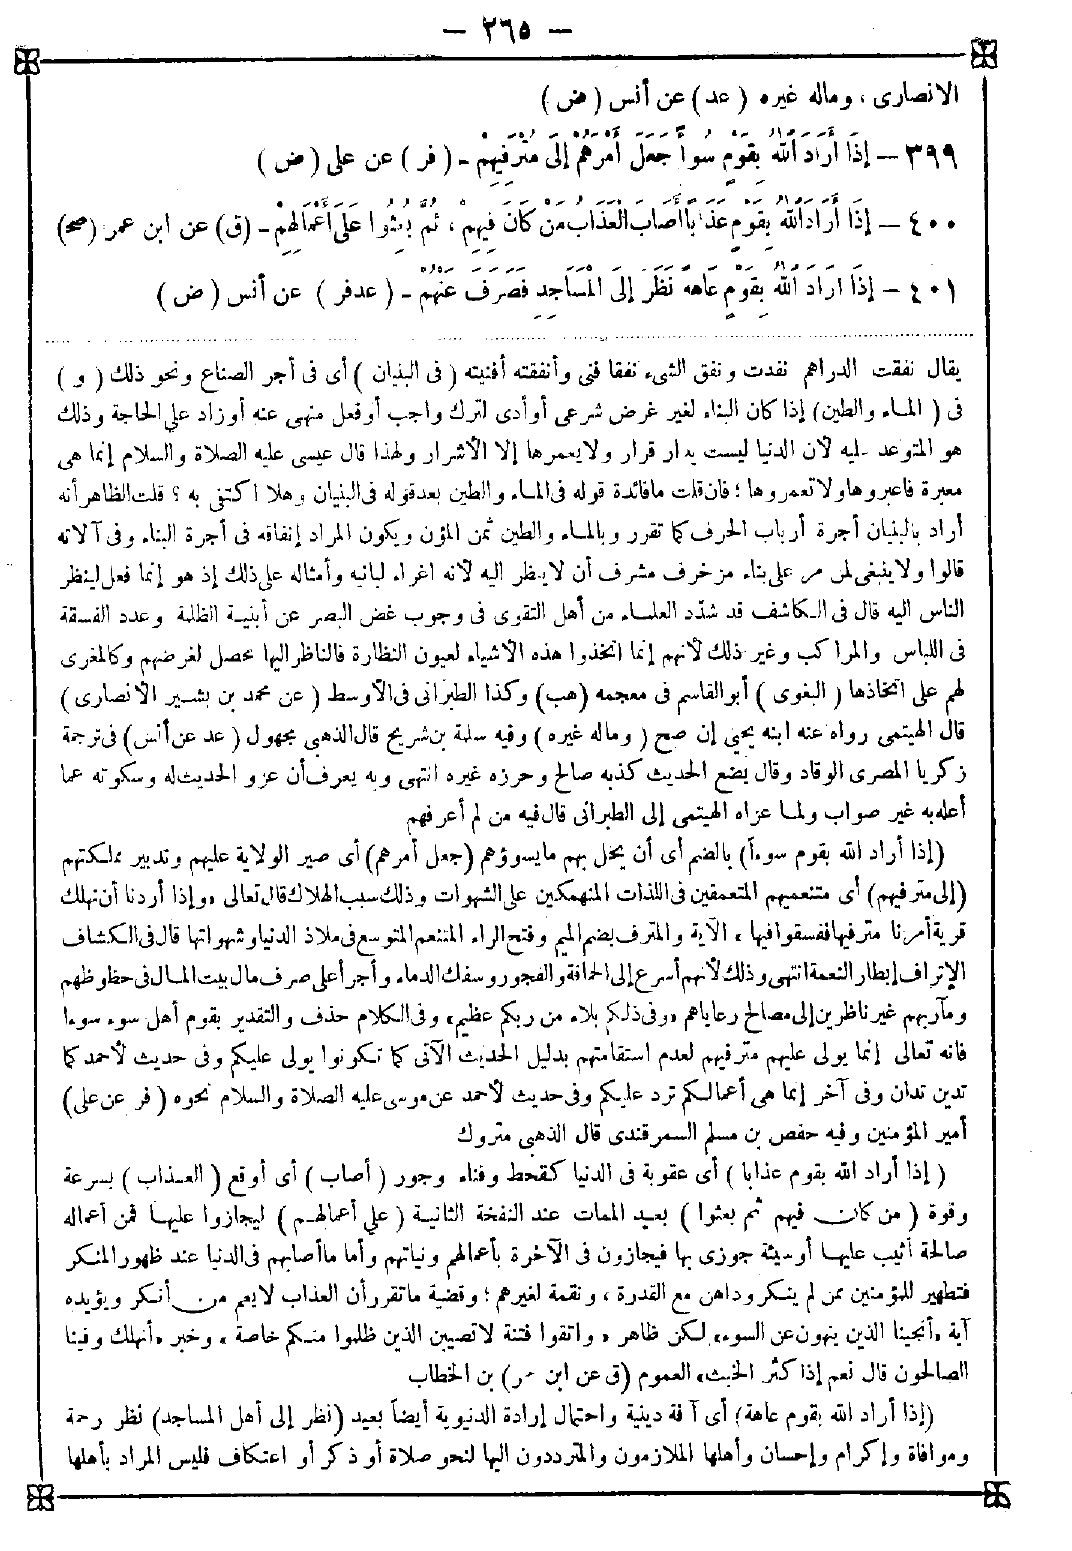 — ٢٦٥ —
الانصارى ، وماله غيره ( عد ) عن أنس ( ض )
٣٩٩ — إِذَا أَرَادَ اللهُ بِقَوْمٍ سُوءاً جَعَلَ أَمْرَهُمْ إِلَى مُتْرَفِيهِمْ - ( فر ) عن على ( ض )
٤٠٠ — إِذَا أَرَادَ اللهُ بِقَوْمٍ عَذَاباً أَصَابَ الْعَذَابُ مَنْ كَانَ فِيهِمْ ، ثُمَّ بُعِثُوا عَلَى أَعْمَالِهِمْ - (ق) عن ابن عمر (صح)
٤٠١ — إِذَا أَرَادَ اللهُ بِقَوْمٍ عَاهَةً نَظَرَ إِلَى الْمَسَاجِدِ فَصَرَفَ عَنْهُمْ - ( عدفر ) عن أنس ( ض )
يقال نفقت الدراهم نفدت ونفق الشىء نفقا فنى وأنفقته أفنيته ( فى البنيان ) أى فى أجر الصناع ونحو ذلك ( و )
فى ( الماء والطين) إذا كان البناء لغير غرض شرعى أو أدى لترك واجب أو فعل منهى عنه أو زاد على الحاجة وذلك
هو المتوعد عليه لأن الدنيا ليست بدار قرار ولا يعمرها إلا الأشرار ولهذا قال عيسى عليه الصلاة والسلام إنما هى
معبرة فاعبروها ولا تعمروها ؛ فان قلت ما فائدة قوله فى الماء والطين بعد قوله فى البنيان وهلا اكتفى به ؟ قلت الظاهر أنه
أراد بالبنيان أجرة أرباب الحرف كما تقرر وبالماء والطين ثمن المؤن ويكون المراد إنفاقه فى أجرة البناء وفى آلاته
قالوا ولا ينبغى لمن مر على بناء مزخرف مشرف أن لا ينظر اليه لأنه اغراء لبانيه وأمثاله على ذلك إذ هو إنما فعل لينظر
الناس اليه قال فى الكاشف قد شدّد العلماء من أهل التقوى فى وجوب غض البصر عن أبنية الظلمة وعدد الفسقة
فى اللباس والمراكب وغير ذلك لأنهم إنما اتخذوا هذه الأشياء لعيون النظارة فالناظر اليها محصل لغرضهم وكالمغرى
لهم على اتخاذها ( البغوى ) أبو القاسم فى معجمه (هب) وكذا الطبرانى فى الأوسط ( عن محمد بن بشير الانصارى )
قال الهيتمى رواه عنه ابنه يحيى إن صح ( وماله غيره ) وفيه سلمة بن شريح قال الذهبى مجهول ( عد عن أنس) فى ترجمة
زكريا المصرى الوقاد وقال يضع الحديث كذبه صالح وحرزه غيره انتهى وبه يعرف أن عزو الحديث له وسكوته عما
أعله به غير صواب ولما عزاه الهيتمى إلى الطبرانى قال فيه من لم أعرفهم
(إذا أراد الله بقوم سوءاً) بالضم أى أن يحل بهم ما يسوؤهم (جعل أمرهم) أى صير الولاية عليهم وتدبير مملكتهم
(إلى مترفيهم) أى متنعميهم المتعمقين فى اللذات المنهمكين على الشهوات وذلك سبب الهلاك قال تعالى «وإذا أردنا أن نهلك
قرية أمرنا مترفيها ففسقوا فيها ، الآية والمترف بضم الميم وفتح الراء المتنعم المتوسع فى ملاذ الدنيا وشهواتها قال فى الكشاف
الإتراف إبطار النعمة انتهى وذلك لأنهم أسرع إلى الحماقة والفجور وسفك الدماء وأجرأ على صرف مال بيت المال فى حظوظهم
ومآربهم غير ناظرين إلى مصالح رعاياهم «وفى ذلكم بلاء من ربكم عظيم» وفى الكلام حذف والتقدير بقوم أهل سوء سوءا
فانه تعالى إنما يولى عليهم مترفيهم لعدم استقامتهم بدليل الحديث الآتى كما تكونوا يولى عليكم وفى حديث لأحمد كما
تدين تدان وفى آخر إنما هى أعمالكم ترد عليكم وفى حديث لأحمد عن موسى عليه الصلاة والسلام نحوه ( فر عن على)
أمير المؤمنين وفيه حفص بن مسلم السمرقندى قال الذهبى متروك
( إذا أراد الله بقوم عذابا ) أى عقوبة فى الدنيا كقحط وفناء وجور ( أصاب ) أى أوقع ( العذاب ) بسرعة
وقوة ( من كان فيهم ثم بعثوا ) بعيد الممات عند النفخة الثانية ( على أعمالهم ) ليجازوا عليها فمن أعماله
صالحة أثيب عليها أو سيئة جوزى بها فيجازون فى الآخرة بأعمالهم ونياتهم وأما ما أصابهم فى الدنيا عند ظهور المنكر
فتطهير للمؤمنين ممن لم ينكر وداهن مع القدرة ، ونقمة لغيرهم ؛ وقضية ما تقرر أن العذاب لا يعم من أنكر ويؤيده
آية «أنجينا الذين ينهون عن السوء» لكن ظاهر «واتقوا فتنة لا تصيبن الذين ظلموا منكم خاصة ، وخبر «أنهلك وفينا
الصالحون قال نعم إذا كثر الخبث» العموم (ق عن ابن عمر) بن الخطاب
(إذا أراد الله بقوم عاهة) أى آفة دينية واحتمال إرادة الدنيوية أيضاً بعيد (نظر إلى أهل المساجد) نظر رحمة
وموافاة وإكرام وإحسان وأهلها الملازمون والمترددون اليها لنحو صلاة أو ذكر أو اعتكاف فليس المراد بأهلها